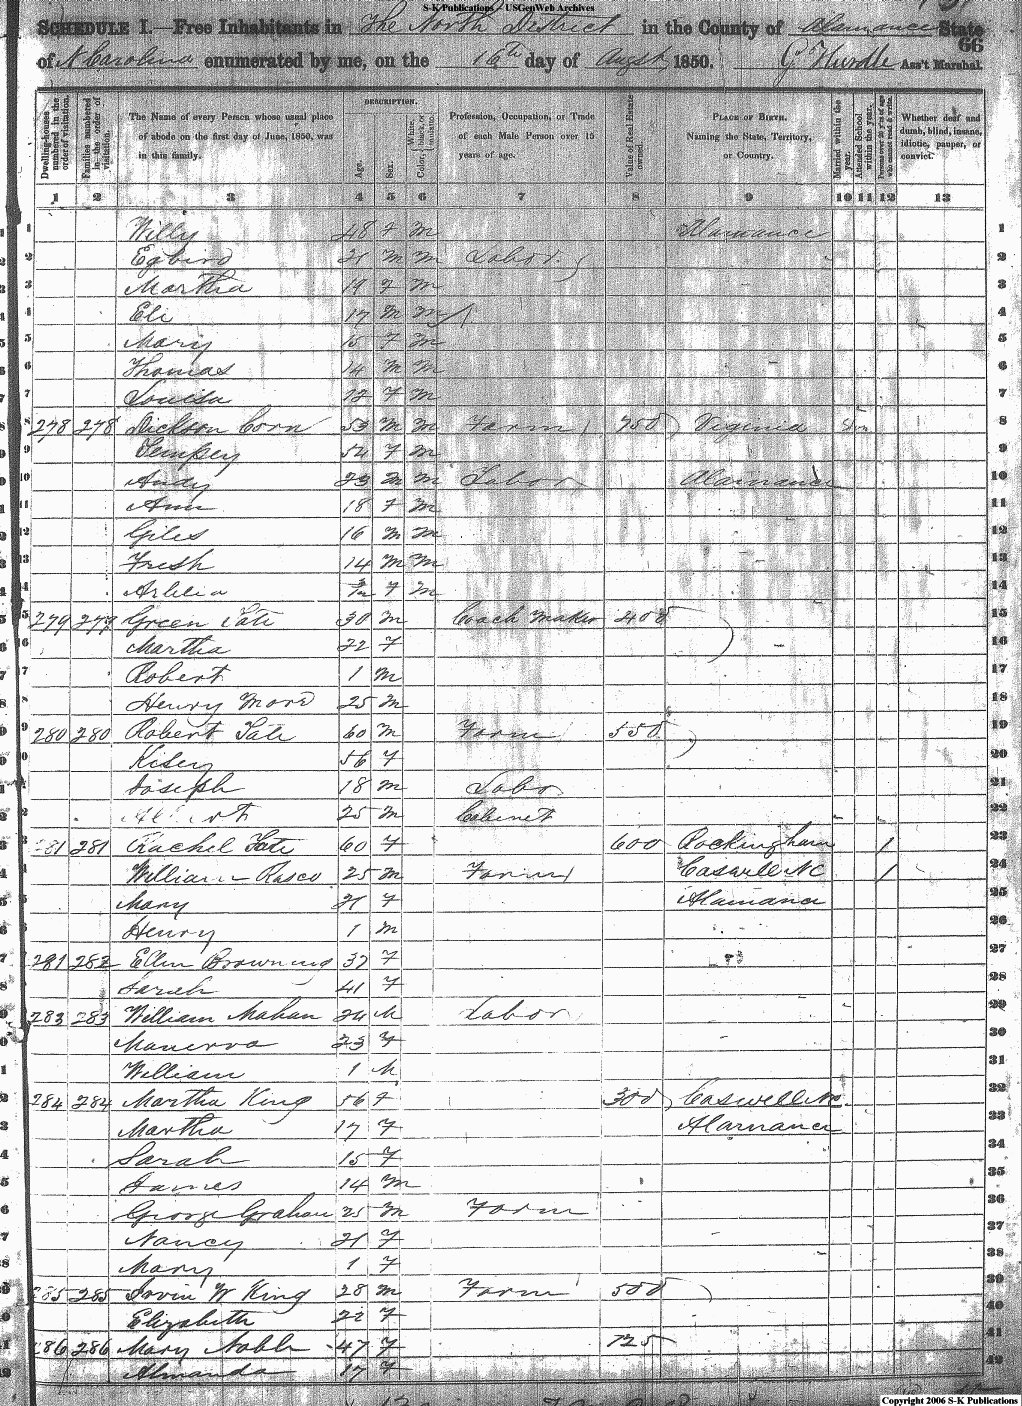 S-K Publications - USGenWeb Archives
SCHEDULE I.—Free Inhabitants in The North District in the County of Alamance State
66
of N Carolina enumerated by me, on the 16th day of Augst, 1850. G Hurdle Ass't Marshal.
Dwelling-houses numbered in the order of visitation.
Families numbered in the order of visitation.
The Name of every Person whose usual place of abode on the first day of June, 1850, was in this family.
DESCRIPTION.
Age.
Sex.
Color, White, black, or mulatto.
Profession, Occupation, or Trade of each Male Person over 15 years of age.
Value of Real Estate owned.
PLACE OF BIRTH. Naming the State, Territory, or Country.
Married within the year.
Attended School within the year.
Persons over 20 y'rs of age who cannot read & write.
Whether deaf and dumb, blind, insane, idiotic, pauper, or convict.
1 2 3 4 5 6 7 8 9 10 11 12 13
1 Willy 48 F M Alamance 1
2 Egbird 21 M M Labor 2
3 Martha 19 F M 3
4 Eli 17 M M 4
5 Mary 15 F M 5
6 Thomas 14 M M 6
7 Louisa 12 F M 7
8 278 278 Dickson Corn 53 M M Farm 750 Virginia 8
9 Tempey 54 F M 9
10 Andy 23 M M Labor Alamance 10
11 Ann 18 F M 11
12 Giles 16 M M 12
13 Fresh 14 M M 13
14 F M 14
279 279 Green Tate 30 M Coach Maker 400 15
Martha 22 F 16
Robert 1 M 17
Henry More 25 M 18
280 280 Robert Tate 60 M Farm 550 19
Kisey 56 F 20
Joseph 18 M Labor 21
25 M Cabinet 22
281 281 Rachel Tate 60 F 600 Rockingham 1 23
William Rasco 25 M Farm Caswell NC 1 24
Mary 21 F Alamance 25
Henry 1 M 26
281 282 Ellen Browning 37 F 27
Sarah 41 F 28
283 283 William Mahan 24 M Labor 29
Manerva 23 F 30
William 1 M 31
284 284 Martha King 56 F 300 Caswell NC 32
Martha 17 F Alamance 33
Sarah 15 F 34
James 14 M 35
George Graham 25 M Farm 36
Nancy 21 F 37
Mary 1 F 38
285 285 Irvin W King 28 M Farm 500 39
Elizabeth 22 F 40
286 286 Mary Noble 47 F 725 41
Almanda 17 F 42
Copyright 2006 S-K Publications